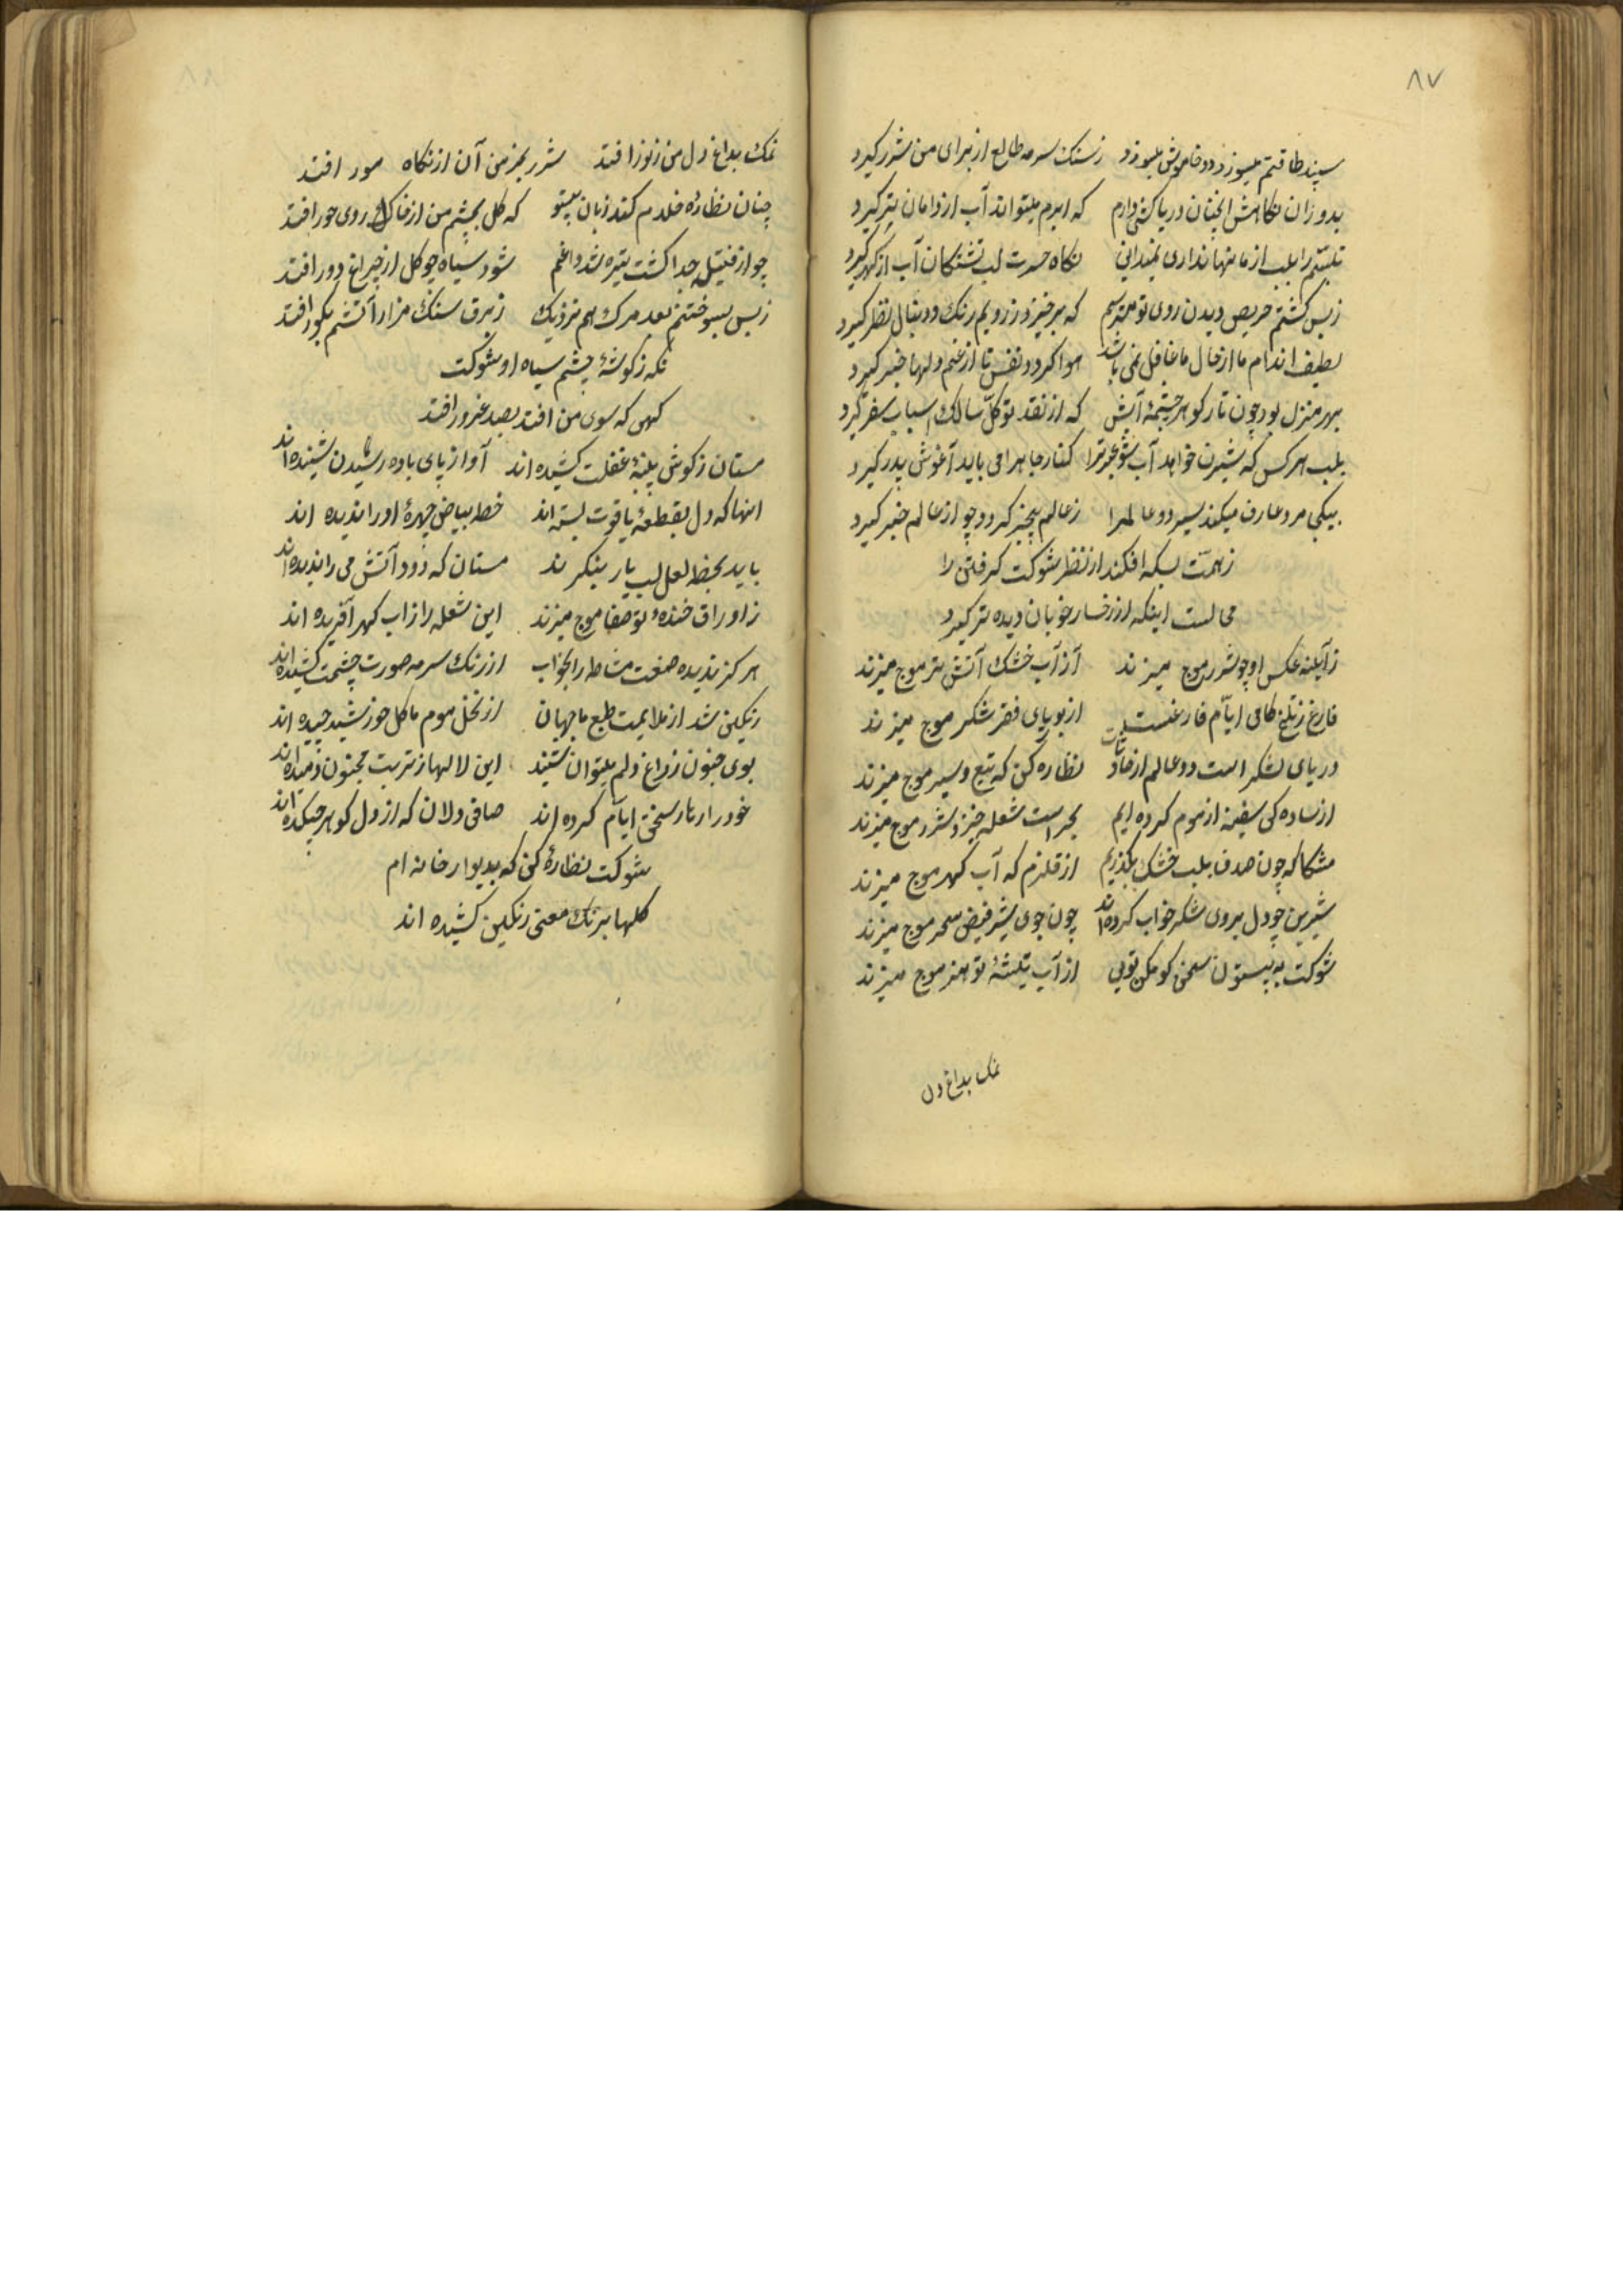 ۸۷
سپند طاقتم میسوزد و دود خاموش میسوزد زسنک سرمه طالع از برای من شرر کیرد
بدوران نکاهش آنچنان دریاکشی دارم که ابرم میتواند آب از دامان تر کیرد
تبسم را بلب از ما نهان داری نمیدانی نکاه حسرت لب تشنکان آب از کهر کیرد
زبس کشتم حریص دیدن روی تو میترسم که برخیزد ز رویم رنک و دنبال نظر کیرد
لطیف اندام ما از حال ما غافل نمی باشد هوا کردد نفس تا از غم دلها خبر کیرد
بهر منزل بود چون تار کوهر چشمهٔ آبش که از نقد توکل سالک اسباب سفر کیرد
بلب هر کس که شیرین خواهد آب شور عبرت را کنار جا هرا می باید آغوش پدر کیرد
بیکی مرد عارف میکند سیر دو عالم را زعالم بیخبر کردد چو از عالم خبر کیرد
زهمت بسکه افکند از نظر شوکت کرفتن را
محالست اینکه از رخسار خوبان دیده تر کیرد
زآیینه عکس او چو شرر موج میزند آز آب خشک آتش تر موج میزند
فارغ زتلخ کامی ایام فارغست از بوریای فقر شکر موج میزند
دریای لشکر است دو عالم از نظاره کن که تیغ و سپر موج میزند
از ساده کی سفینه از موم کرده ایم بحر است شعله خیز و شرر موج میزند
مشکل که چون صدف بلب خشک بکذریم از قلزم که آب کهر موج میزند
شیرین چو دل بروی شکر خواب کرده اند چون جوی شیر فیض سحر موج میزند
شوکت به بیستون سخن کوهکن تویی از آب تیشهٔ تو هنر موج میزند
نمک بداغ دل
نمک بداغ دل من ز نور افتد شرر بمزمن آن از نکاه مور افتد
چنان نظارهٔ خلدم کند زیان بیتو که کل بچشم من از خاک روی حور افتد
چو از فتیل جدا کشت تیره شد داغم شود سیاه چو کل از چراغ دور افتد
زبس بسوختنم بعد مرک هم نزدیک زبرق سنک مزار آتشم بکور افتد
نکه ز کوشهٔ چشم سیاه او شوکت
کهی که سوی من افتد بصد غرور افتد
مستان ز کوش پنبهٔ غفلت کشیده اند آواز پای باده رسیدن شنیده اند
اینها که دل بقطعهٔ یاقوت بسته اند خط بیاض چهرهٔ او را ندیده اند
باید بخط لعل لب یار بنکرند مستان که دود آتش می را ندیده اند
ز اوراق خندهٔ تو صفا موج میزند این شعله را ز آب کهر آفریده اند
هر کز ندیده صنعت مشاطه را بخواب از رنک سرمه صورت چشمت کشیده اند
رنکین شد از ملایمت طبع ما جهان از نخل موم ما کل خورشید چیده اند
بوی جنون ز داغ دلم میتوان شنید این لالها ز تربت مجنون دمیده اند
خود را ز بار سختی ایام کرده اند صافی دلان که از دل کوهر چکیده اند
شوکت نظارهٔ کن که بدیوار خانه ام
کلها برنک معنی رنکین کشیده اند